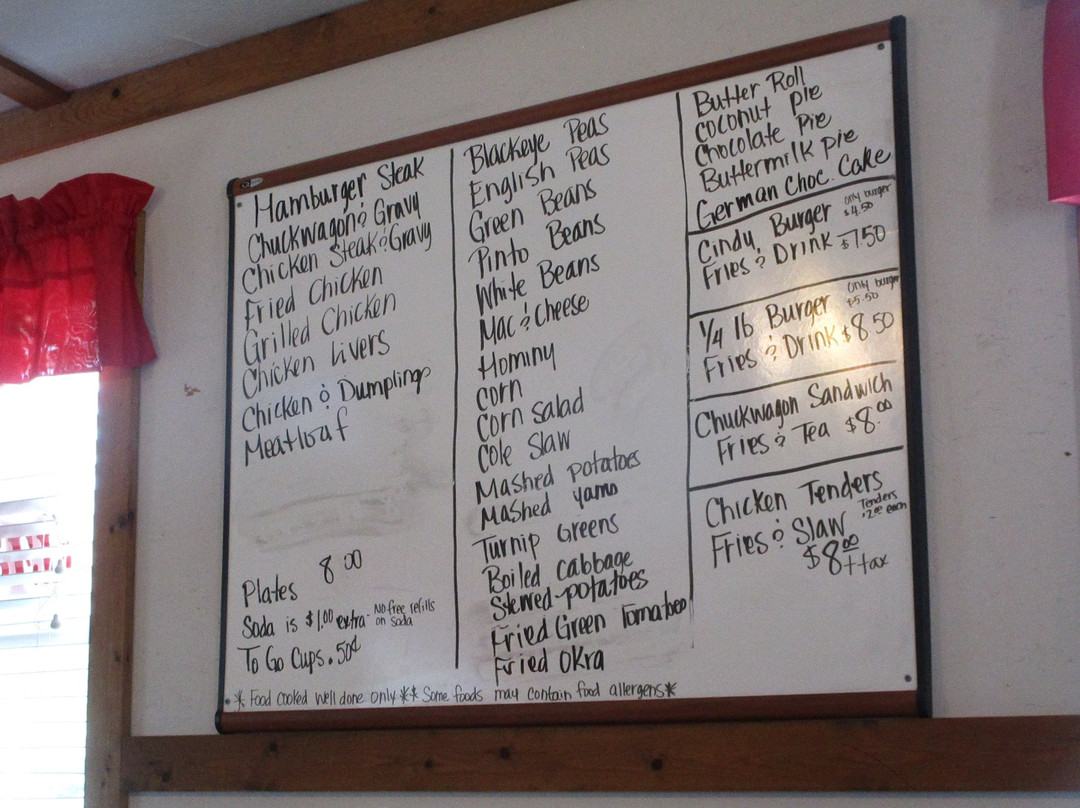 Hamburger Steak
Chuckwagon & Gravy
Chicken Steak & Gravy
Fried Chicken
Grilled Chicken
Chicken Livers
Chicken & Dumplings
Meatloaf
Plates 8.00
Soda is $1.00 extra - No free refills on soda
To Go Cups .50¢
Blackeye Peas
English Peas
Green Beans
Pinto Beans
White Beans
Mac & Cheese
Hominy
Corn
Corn Salad
Cole Slaw
Mashed potatoes
Mashed yams
Turnip Greens
Boiled Cabbage
Stewed potatoes
Fried Green Tomatoes
Fried Okra
Butter Roll
Coconut Pie
Chocolate Pie
Buttermilk Pie
German Choc. Cake
Cindy Burger only burger $4.50
Fries & Drink $7.50
1/4 lb Burger only burger $5.50
Fries & Drink $8.50
Chuckwagon Sandwich
Fries & Tea $8.00
Chicken Tenders
Fries & Slaw Tenders $2.00 each
$8.00 + tax
* Food cooked well done only ** Some foods may contain food allergens *